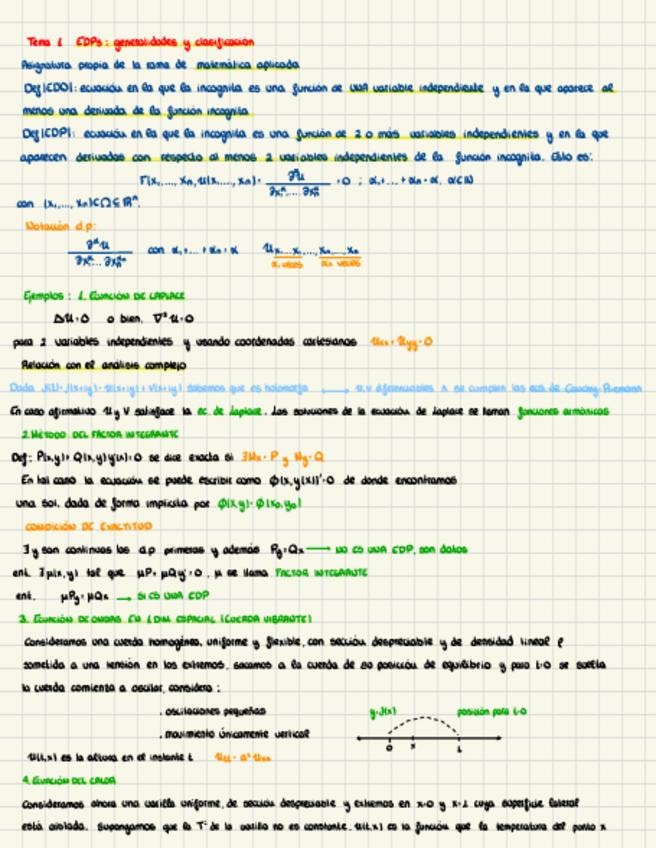 Tema 1 EDPs: generalidades y clasificación
Asignatura propia de la rama de matemática aplicada
Def|EDO|: ecuación en la que la incognita es una función de UNA variable independiente y en la que aparece al
menos una derivada de la función incognita.
Def|EDP|: ecuación en la que la incognita es una función de 2 o más variables independientes y en la que
aparecen derivadas con respecto al menos 2 variables independientes de la función incognita. Esto es:
F(x₁,..., xₙ, u(x₁,..., xₙ), ∂ᵅu / ∂x₁^α₁... ∂xₙ^αₙ) = 0 ; α₁+...+αₙ = α, α∈ℕ
con (x₁,..., xₙ)∈Ω⊆ℝⁿ.
Notación d.p:
∂ᵅu / ∂x₁^α₁... ∂xₙ^αₙ con α₁+...+αₙ = α u x₁...x₁,..., xₙ...xₙ
α₁ veces αₙ veces
Ejemplos: 1. ECUACIÓN DE LAPLACE
Δu=0 o bien, ∇²u=0
para 2 variables independientes y usando coordenadas cartesianas uxx+uyy=0
Relación con el análisis complejo
Dada sabemos que es holomorfa u,v diferenciables ∧ se cumplen las ecs. de Cauchy-Riemann
En caso afirmativo u y v satisface la ec. de Laplace. Las soluciones de la ecuación de Laplace se llaman funciones armónicas
2. MÉTODO DEL FACTOR INTEGRANTE
Def: P(x,y)+Q(x,y)y'(x)=0 se dice exacta si
En tal caso la ecuación se puede escribir como ϕ(x,y(x))'=0 de donde encontramos
una sol. dada de forma implícita por ϕ(x,y)=ϕ(x₀,y₀)
CONDICIÓN DE EXACTITUD
∃ y son continuas las d.p primeras y además Py=Qx → NO ES UNA EDP, son datos
ent. ∃μ(x,y) tal que μP+μQy'=0, μ se llama FACTOR INTEGRANTE
ent. μPy=μQx → SI ES UNA EDP
3. ECUACIÓN DE ONDAS EN 1 DIM. ESPACIAL (CUERDA VIBRANTE)
Consideramos una cuerda homogénea, uniforme y flexible, con sección despreciable y de densidad lineal ρ
sometida a una tensión en los extremos, sacamos a la cuerda de su posición de equilibrio y para t=0 se suelta
la cuerda comienza a oscilar, considera:
. oscilaciones pequeñas
y=f(x) posición para t=0
. movimiento únicamente vertical
0 x L
u(t,x) es la altura en el instante t utt=a²uxx
4. ECUACIÓN DEL CALOR
Consideramos ahora una varilla uniforme, de sección despreciable y extremos en x=0 y x=L cuya superficie lateral
está aislada. Supongamos que la Tª de la varilla no es constante. u(t,x) es la función que la temperatura del punto x